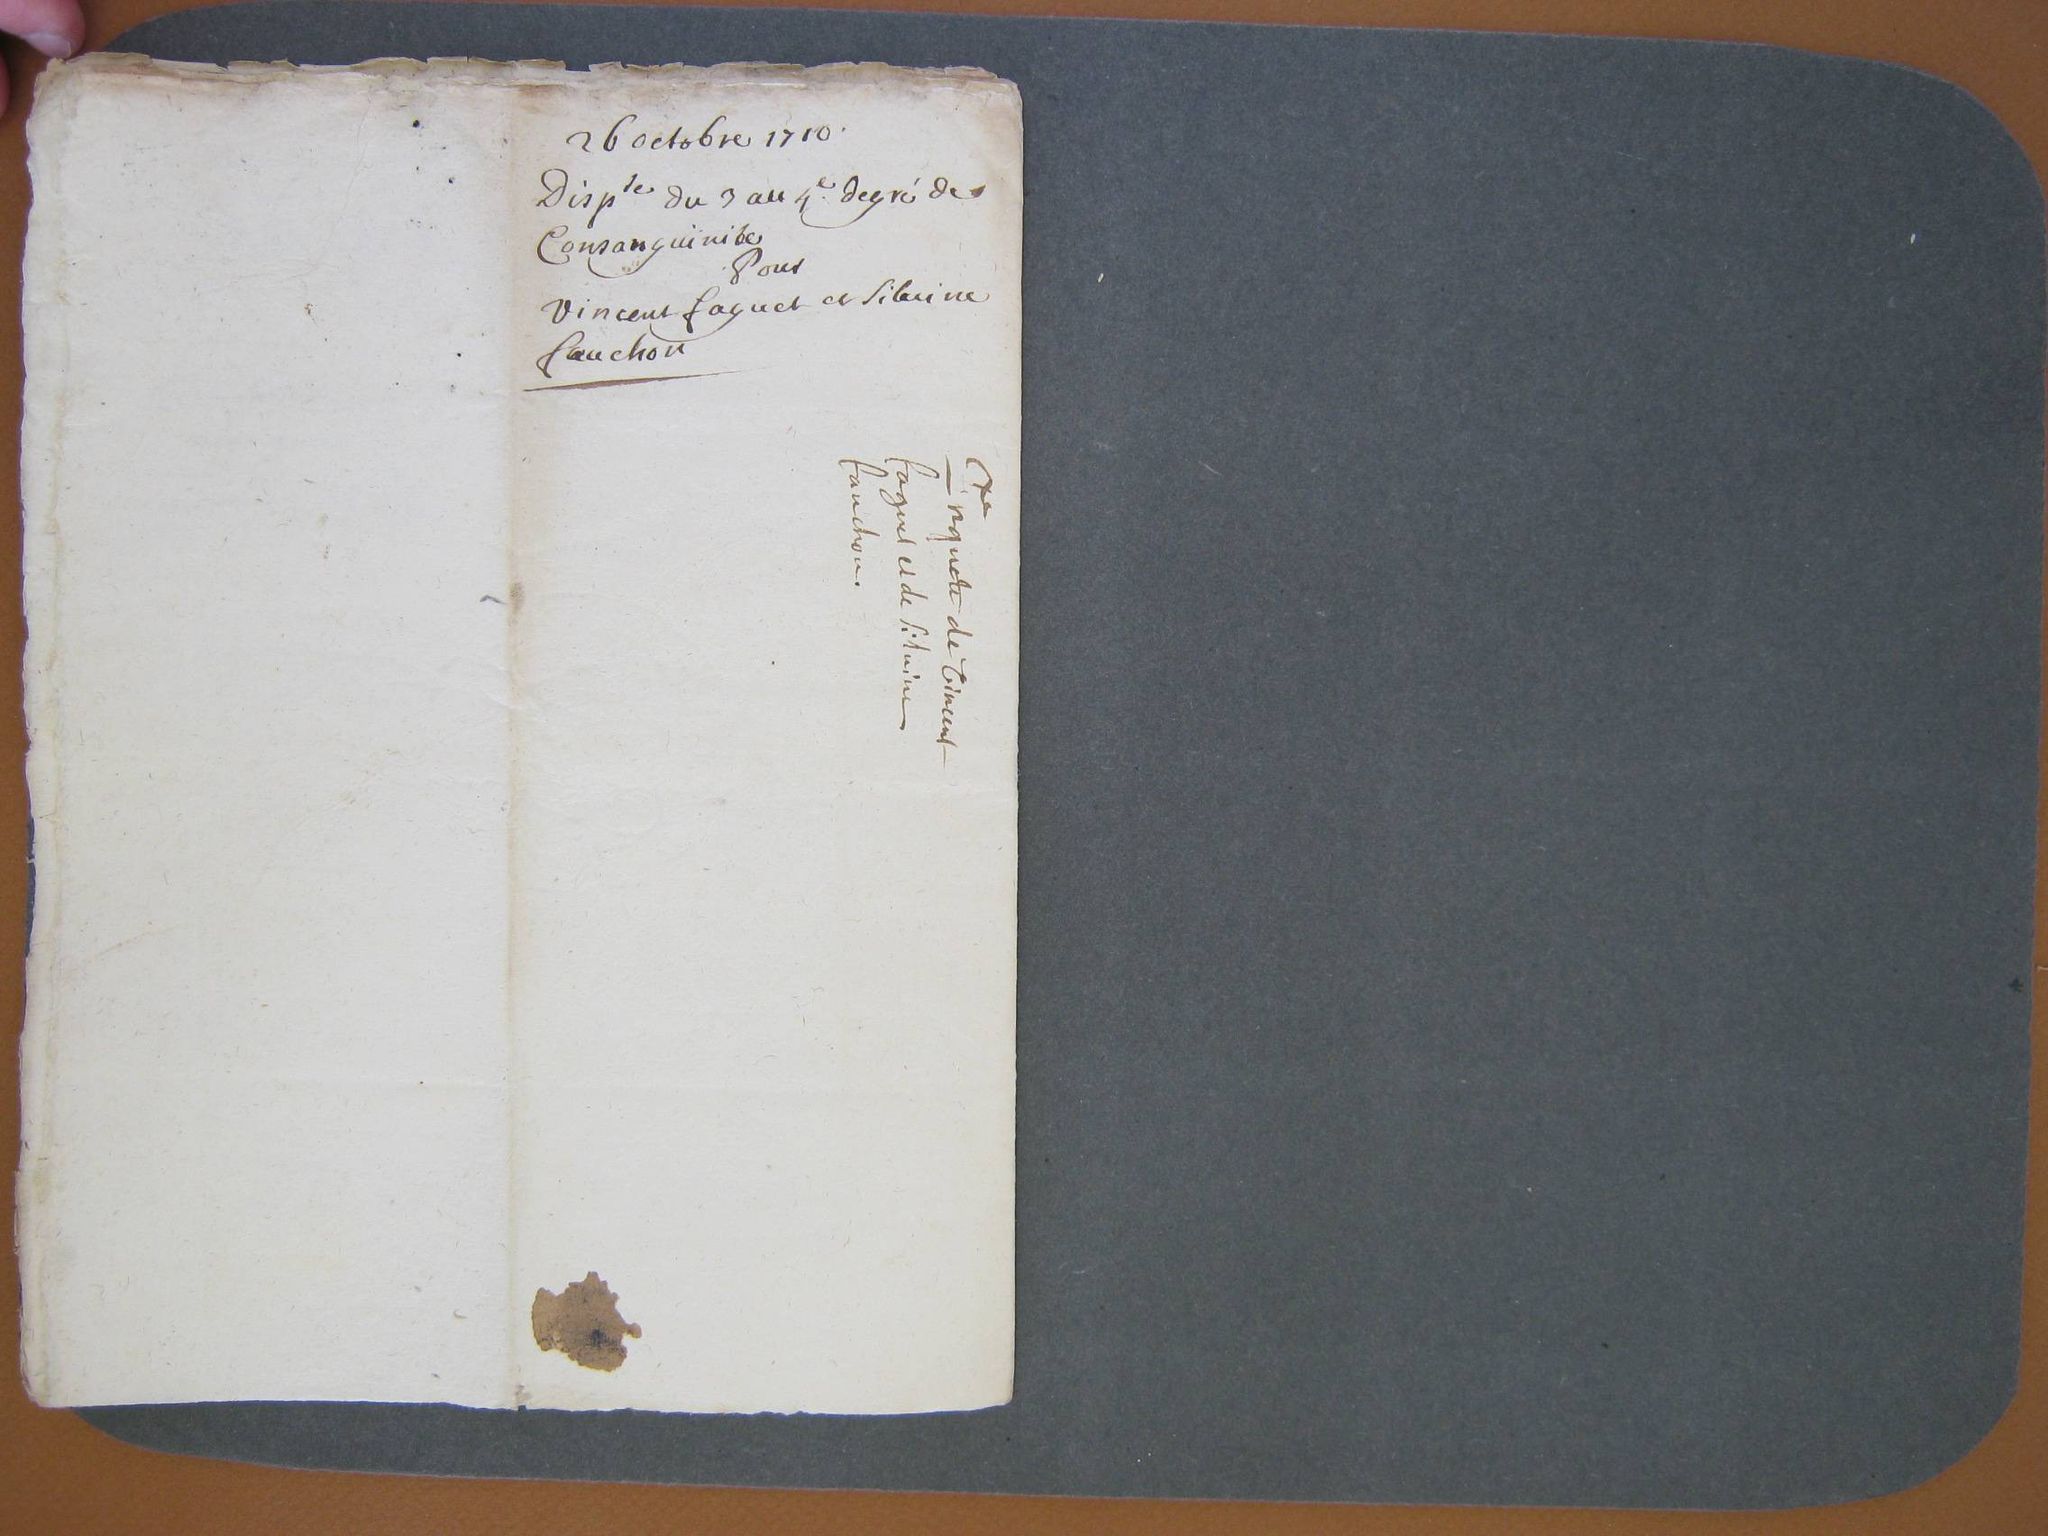 26 octobre 1710.
Disp.le du 3 au 4.e degré de
Consanguinite
Pour
Vincent faguet et silvine
fauchon
requete de Vincent
faguet et de silvine
fauchon.